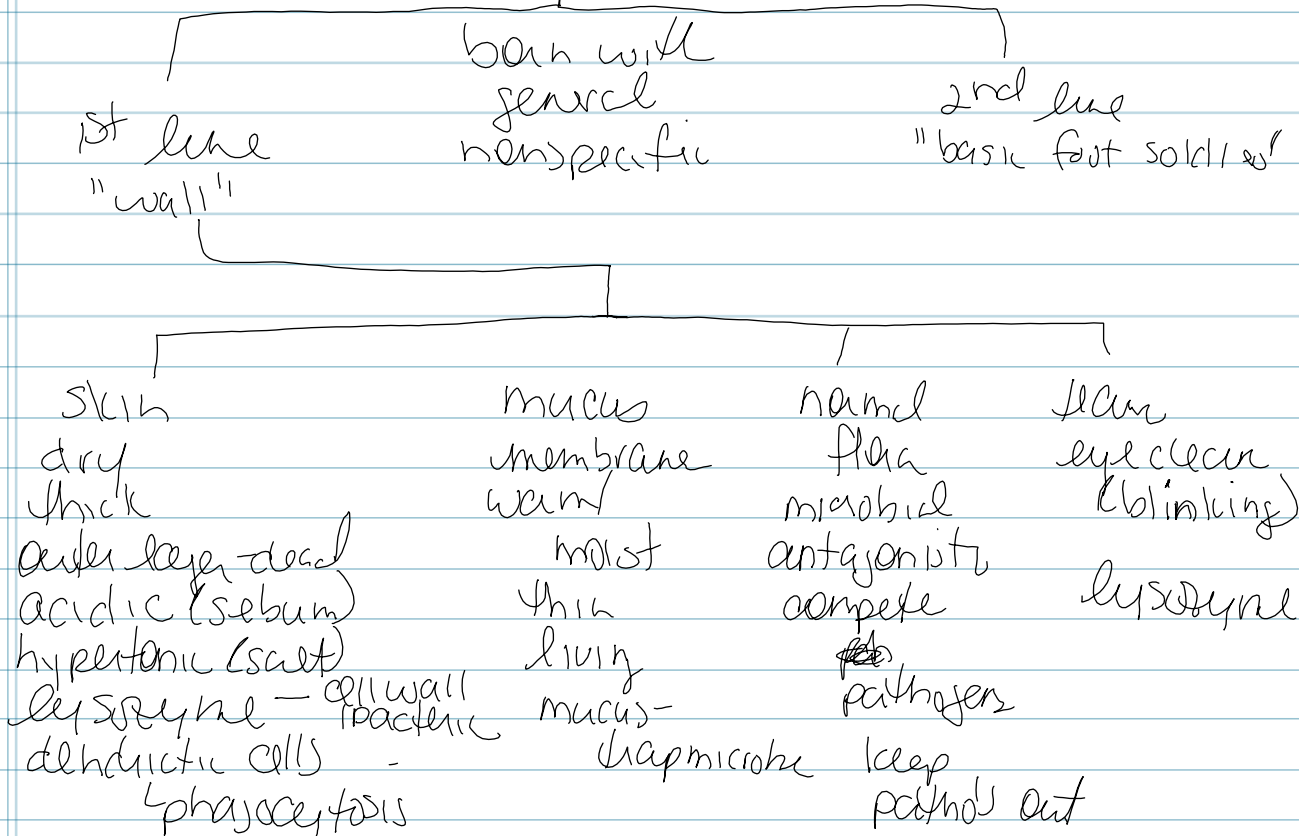 born with
general
nonspecific
1st line
"wall"
2nd line
"basic foot soldiers"
skin
dry
thick
outer layer - dead
acidic (sebum)
hypertonic (salt)
lysozyme — cell wall
bacteria
dendrictic cells -
phagocytosis
mucus
membrane
warm/
moist
thin
living
mucus-
trap microbe
normal
flora
microbial
antagonists
compete
pathogens
keep
patho's out
tears
eye clean
(blinking)
lysozyme